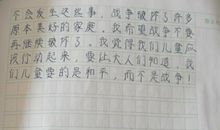 不会发生这些事，战争破坏了许多
原本美好的家庭。我希望战争不要
再继续破坏了。我觉得我们儿童应
该行动起来，要让大人们知道，我
们儿童要的是和平，而不是战争！